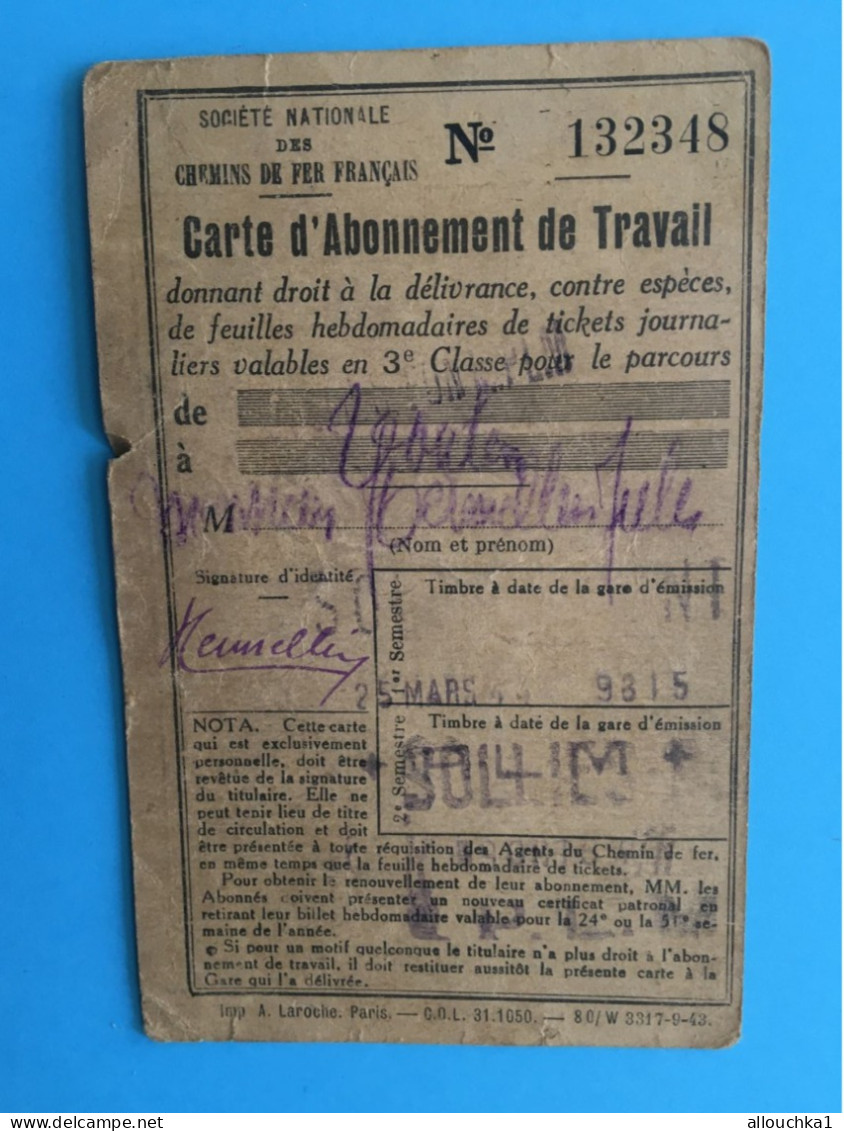 SOCIÉTÉ NATIONALE
DES
CHEMINS DE FER FRANÇAIS
Nº 132348
Carte d'Abonnement de Travail
donnant droit à la délivrance, contre espèces,
de feuilles hebdomadaires de tickets journa-
liers valables en 3e Classe pour le parcours
de
à
M
(Nom et prénom)
Signature d'identité
1er Semestre
Timbre à date de la gare d'émission
25 MARS 9815
2e Semestre
Timbre à date de la gare d'émission
NOTA. - Cette carte
qui est exclusivement
personnelle, doit être
revêtue de la signature
du titulaire. Elle ne
peut tenir lieu de titre
de circulation et doit
être présentée à toute réquisition des Agents du Chemin de fer,
en même temps que la feuille hebdomadaire de tickets.
Pour obtenir le renouvellement de leur abonnement, MM. les
Abonnés doivent présenter un nouveau certificat patronal en
retirant leur billet hebdomadaire valable pour la 24e ou la 51e se-
maine de l'année.
Si pour un motif quelconque le titulaire n'a plus droit à l'abon-
nement de travail, il doit restituer aussitôt la présente carte à la
Gare qui l'a délivrée.
Imp A. Laroche. Paris. — C.O.L. 31.1050. — 80/W 3317-9-43.
delcampe.net
allouchka1